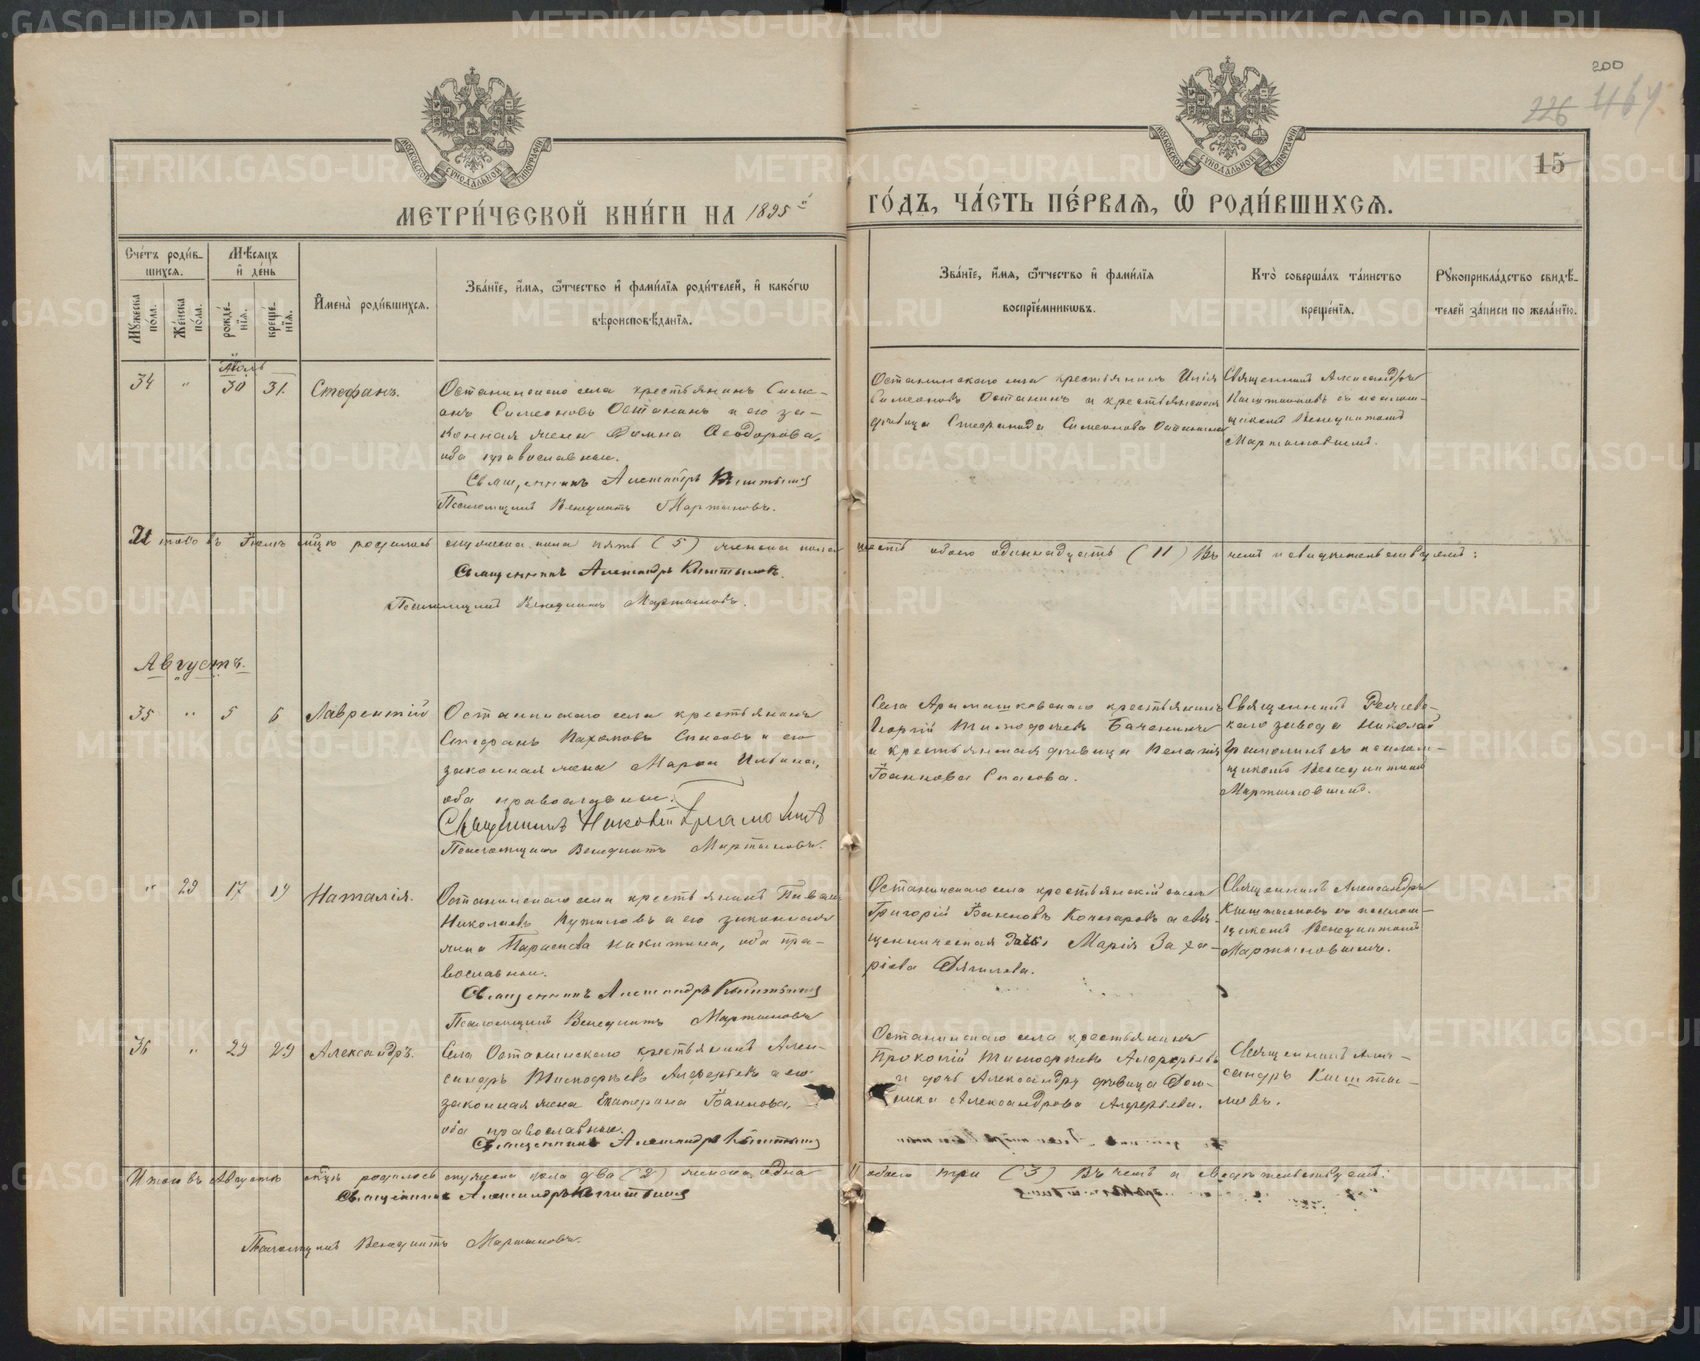 200
226
15
МЕТРИ́ЧЕСКОЙ КНИ́ГИ НА 1895й
ГО́ДЪ, ЧА́СТЬ ПЕ́РВАѦ, Ѿ РОДИ́ВШИХСѦ.
Сче́тъ роди́в-
шихсѧ.
Мѣ́сѧцъ
и҆ де́нь
Мꙋ́жеска по́ла.
Же́нска по́ла.
рожде́нїѧ.
креще́нїѧ.
И҆мена̀ роди́вшихсѧ.
Зва́нїе, и҆́мѧ, ѻ҆́тчество и҆ фами́лїѧ роди́телей, и҆ како́гѡ
вѣроисповѣ́данїѧ.
Зва́нїе, и҆́мѧ, ѻ҆́тчество и҆ фами́лїѧ
воспрїе́мникѡвъ.
Кто̀ соверша́лъ та́инство
креще́нїѧ.
Рꙋкоприкла́дство свидѣ́-
телей за́писи по жела́нїю.
Іюль
34 " 30 31. Стефанъ.
Останинскаго села крестьянинъ Симе-
онъ Симеоновъ Останинъ и его за-
конная жена Домна Ѳеодорова,
оба православные.
Священникъ Александръ Кыштымов
Псаломщикъ Венедиктъ Мартыновъ.
Останинскаго села крестьянинъ Илія
Симеоновъ Останинъ и крестьянская
дѣвица Стефанида Симеонова Останина
Священникъ Александръ
Кыштымовъ съ псалом-
щикомъ Венедиктомъ
Мартыновымъ.
Итого въ Іюлѣ мцѣ родилось мужеска пола пять (5) женска пола шесть обоего одинадцать (11) Въ чемъ и свидѣтельствуемъ:
Священникъ Александръ Кыштымовъ.
Псаломщикъ Венедиктъ Мартыновъ.
Августъ.
35 " 5 6 Лаврентій
Останинскаго села крестьянинъ
Стефанъ Пахомовъ Спасовъ и его
законная жена Марѳа Ильина,
оба православные.
Священникъ Николай
Псаломщикъ Венедиктъ Мартыновъ.
Села Арамашковскаго крестьянинъ
Георгій Тимофеевъ Баченинъ
и крестьянская дѣвица Пелагія
Іоаннова Спасова.
Священникъ Режев-
скаго завода Николай
съ псалом-
щикомъ Венедиктомъ
Мартыновымъ.
" 29 17 19 Наталія.
Останинскаго села крестьянинъ
Николаевъ Путиловъ и его законная
жена Параскева Никитина, оба пра-
вославные.
Священникъ Александръ Кыштымов
Псаломщикъ Венедиктъ Мартыновъ
Останинскаго села крестьянскій сынъ
Григорій Іоанновъ Кочегаровъ и свя-
щенническая дочь Марія Заха-
ріева Дягилева.
Священникъ Александръ
Кыштымовъ съ псалом-
щикомъ Венедиктомъ
Мартыновымъ.
36 " 29 29 Александръ.
Села Останинскаго крестьянинъ Алек-
сандръ Тимофѣевъ Алферьевъ и его
законная жена Екатерина Іоаннова,
оба православные.
Священникъ Александръ Кыштымов
Останинскаго села крестьянинъ
Прокопій Тимофѣевъ Алферьевъ
и дочь Александра дѣвица Дом-
ника Александрова Алферьева.
Священникъ Алек-
сандръ Кышты-
мовъ.
Итого въ Августѣ мцѣ родилось мужска пола два (2) женска одна обоего три (3) Въ чемъ и свидѣтельствуемъ:
Священникъ Александръ Кыштымов
Псаломщикъ Венедиктъ Мартыновъ.